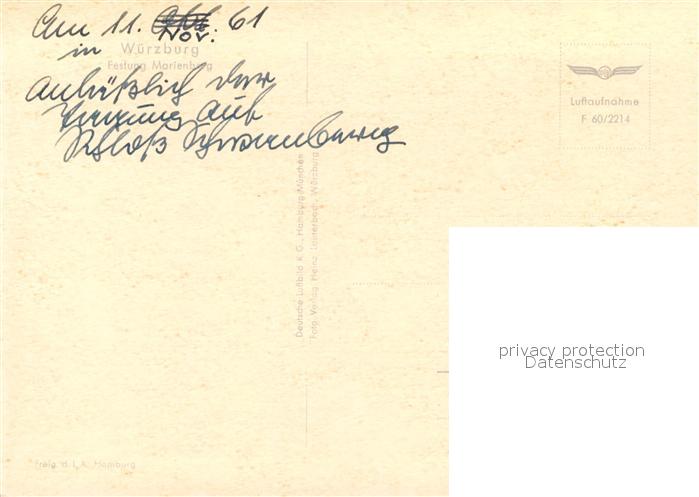 Am 11. Nov. 61
in
Würzburg
Festung Marienberg
anläßlich der
Tagung auf
Schloß Schwanberg
Luftaufnahme
F 60/2214
Deutsche Luftbild K.G., Hamburg-München
Foto Verlag Heinz Lauterbach, Würzburg
Freig. d. L.A. Hamburg
privacy protection
Datenschutz